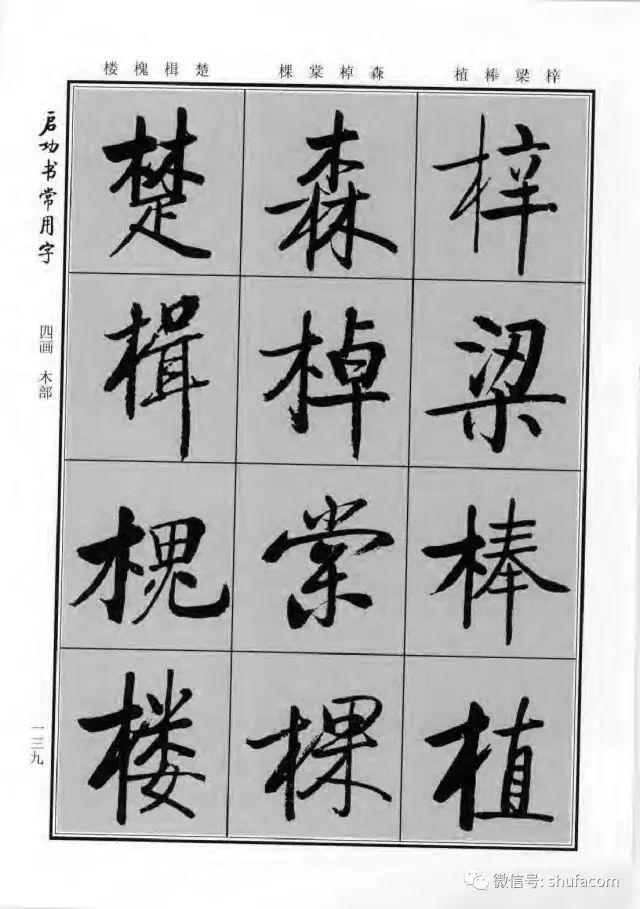 楼槐楫楚 棵棠棹森 植棒梁梓
启功书常用字
四画 木部
一三九
楚 森 梓
楫 棹 梁
槐 棠 棒
楼 棵 植
微信号: shufacom